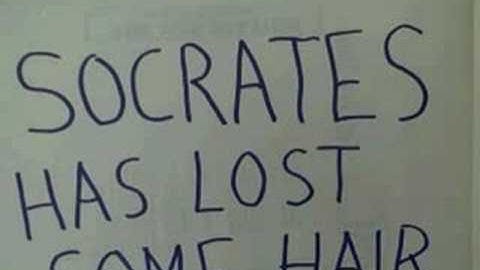 SOCRATES
HAS LOST
SOME HAIR